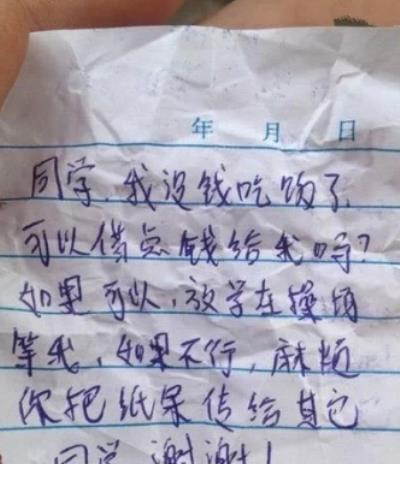 年 月 日
同学，我没钱吃饭了，
可以借点钱给我吗？
如果可以，放学在操场
等我，如果不行，麻烦
你把纸条传给其它
同学，谢谢！